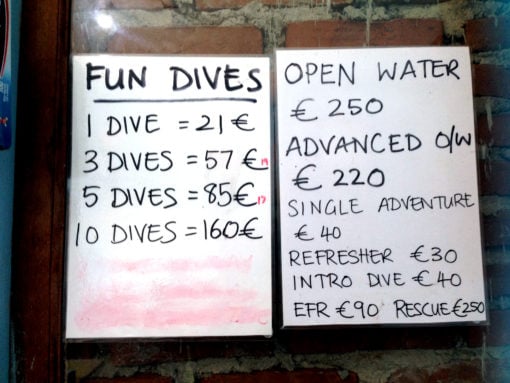 FUN DIVES
1 DIVE = 21 €
3 DIVES = 57 € 19
5 DIVES = 85€ 17
10 DIVES = 160€
OPEN WATER
€ 250
ADVANCED O/W
€ 220
SINGLE ADVENTURE
€ 40
REFRESHER €30
INTRO DIVE €40
EFR €90 RESCUE €250